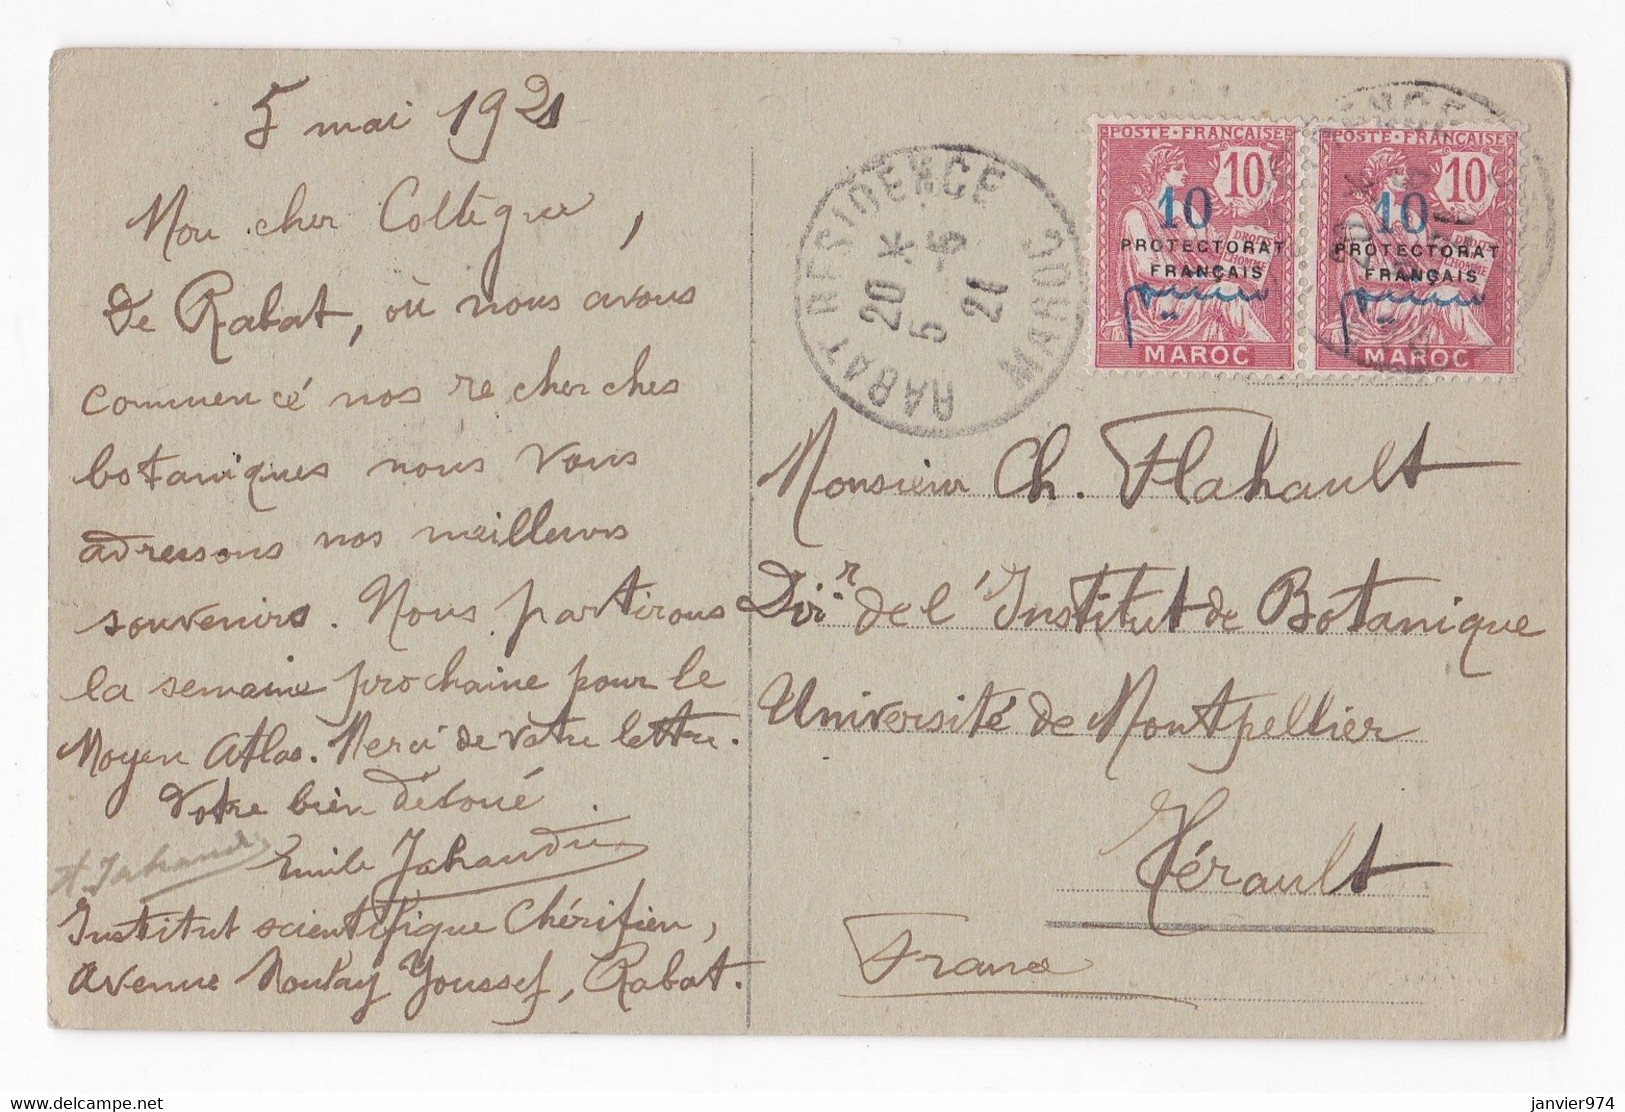 5 mai 1921
Mon cher Collègue,
De Rabat, où nous avons
commencé nos recherches
botaniques nous vous
adressons nos meilleurs
souvenirs. Nous partirons
la semaine prochaine pour le
Moyen Atlas. Merci de votre lettre.
Votre bien dévoué
Emile Jahandiez
Institut scientifique Chérifien,
avenue Moulay Youssef, Rabat.
RABAT RESIDENCE
MAROC
20 *
5 - 5
21
POSTE • FRANÇAISE
10
10
PROTECTORAT
FRANÇAIS
DROITS
DE
L'HOMME
MAROC
POSTE • FRANÇAISE
10
10
PROTECTORAT
FRANÇAIS
MAROC
Monsieur Ch. Flahault
Dirr de l'Institut de Botanique
Université de Montpellier
Hérault
France
delcampe.net
janvier974